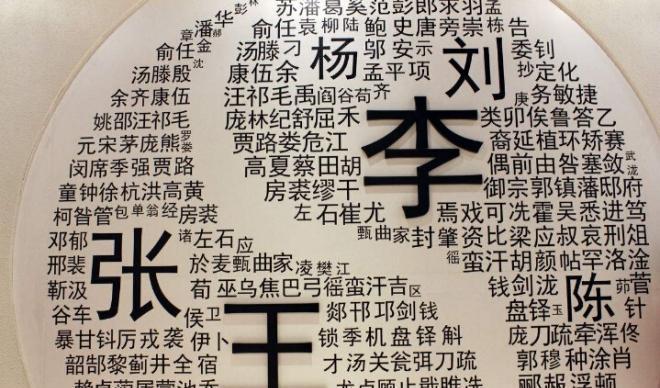 彭 林 苏 潘 葛 奚 范 彭 郎 求 羽 孟
章 潘 华 郝 俞 任 袁 柳 陆 鲍 史 唐 旁 崇 栋 告
俞 任 金 汤 滕 刁 杨 邬 安 示 刘 委 钊
汤 滕 殷 沈 康 伍 余 孟 平 项 抄 定 化
余 齐 康 伍 汪 祁 毛 禹 阎 谷 荀 齐 庚 务 敏 捷
姚 邵 汪 祁 毛 庞 林 纪 舒 屈 禾 李 类 卯 俟 鲁 答 乙
元 宋 茅 庞 熊 罗 娄 贾 路 娄 危 江 裔 延 植 环 矫 赛
闵 席 季 强 贾 路 高 夏 蔡 田 胡 偶 前 由 昝 塞 敛 武 泷
童 钟 徐 杭 洪 高 黄 房 裘 缪 干 御 宗 郭 镇 藩 邸 府
柯 昝 管 包 单 翁 经 房 裘 左 石 崔 尤 焉 戏 可 冼 霍 吴 悉 进 笃
邓 郁 张 诸 左 石 应 甄 曲 家 封 肇 资 比 梁 应 叔 哀 刑 俎
邢 裴 於 麦 甄 曲 家 凌 樊 江 徭 蛮 汗 胡 颜 帖 罕 洛 淦
靳 汲 荀 巫 乌 焦 巴 弓 徭 蛮 汗 吉 区 钱 剑 泷 陈 茆 菅
谷 车 侯 卫 王 郯 邗 邛 剑 钱 盘 铎 玉 针
暴 甘 钭 厉 戎 袭 伊 卜 锁 季 机 盘 铎 斛 庞 刀 疏 牵 浑 佟
韶 郜 黎 蓟 井 全 宿 才 汤 关 瓮 弭 刀 疏 郭 穆 种 涂 肖
郦 郝 浮 顿